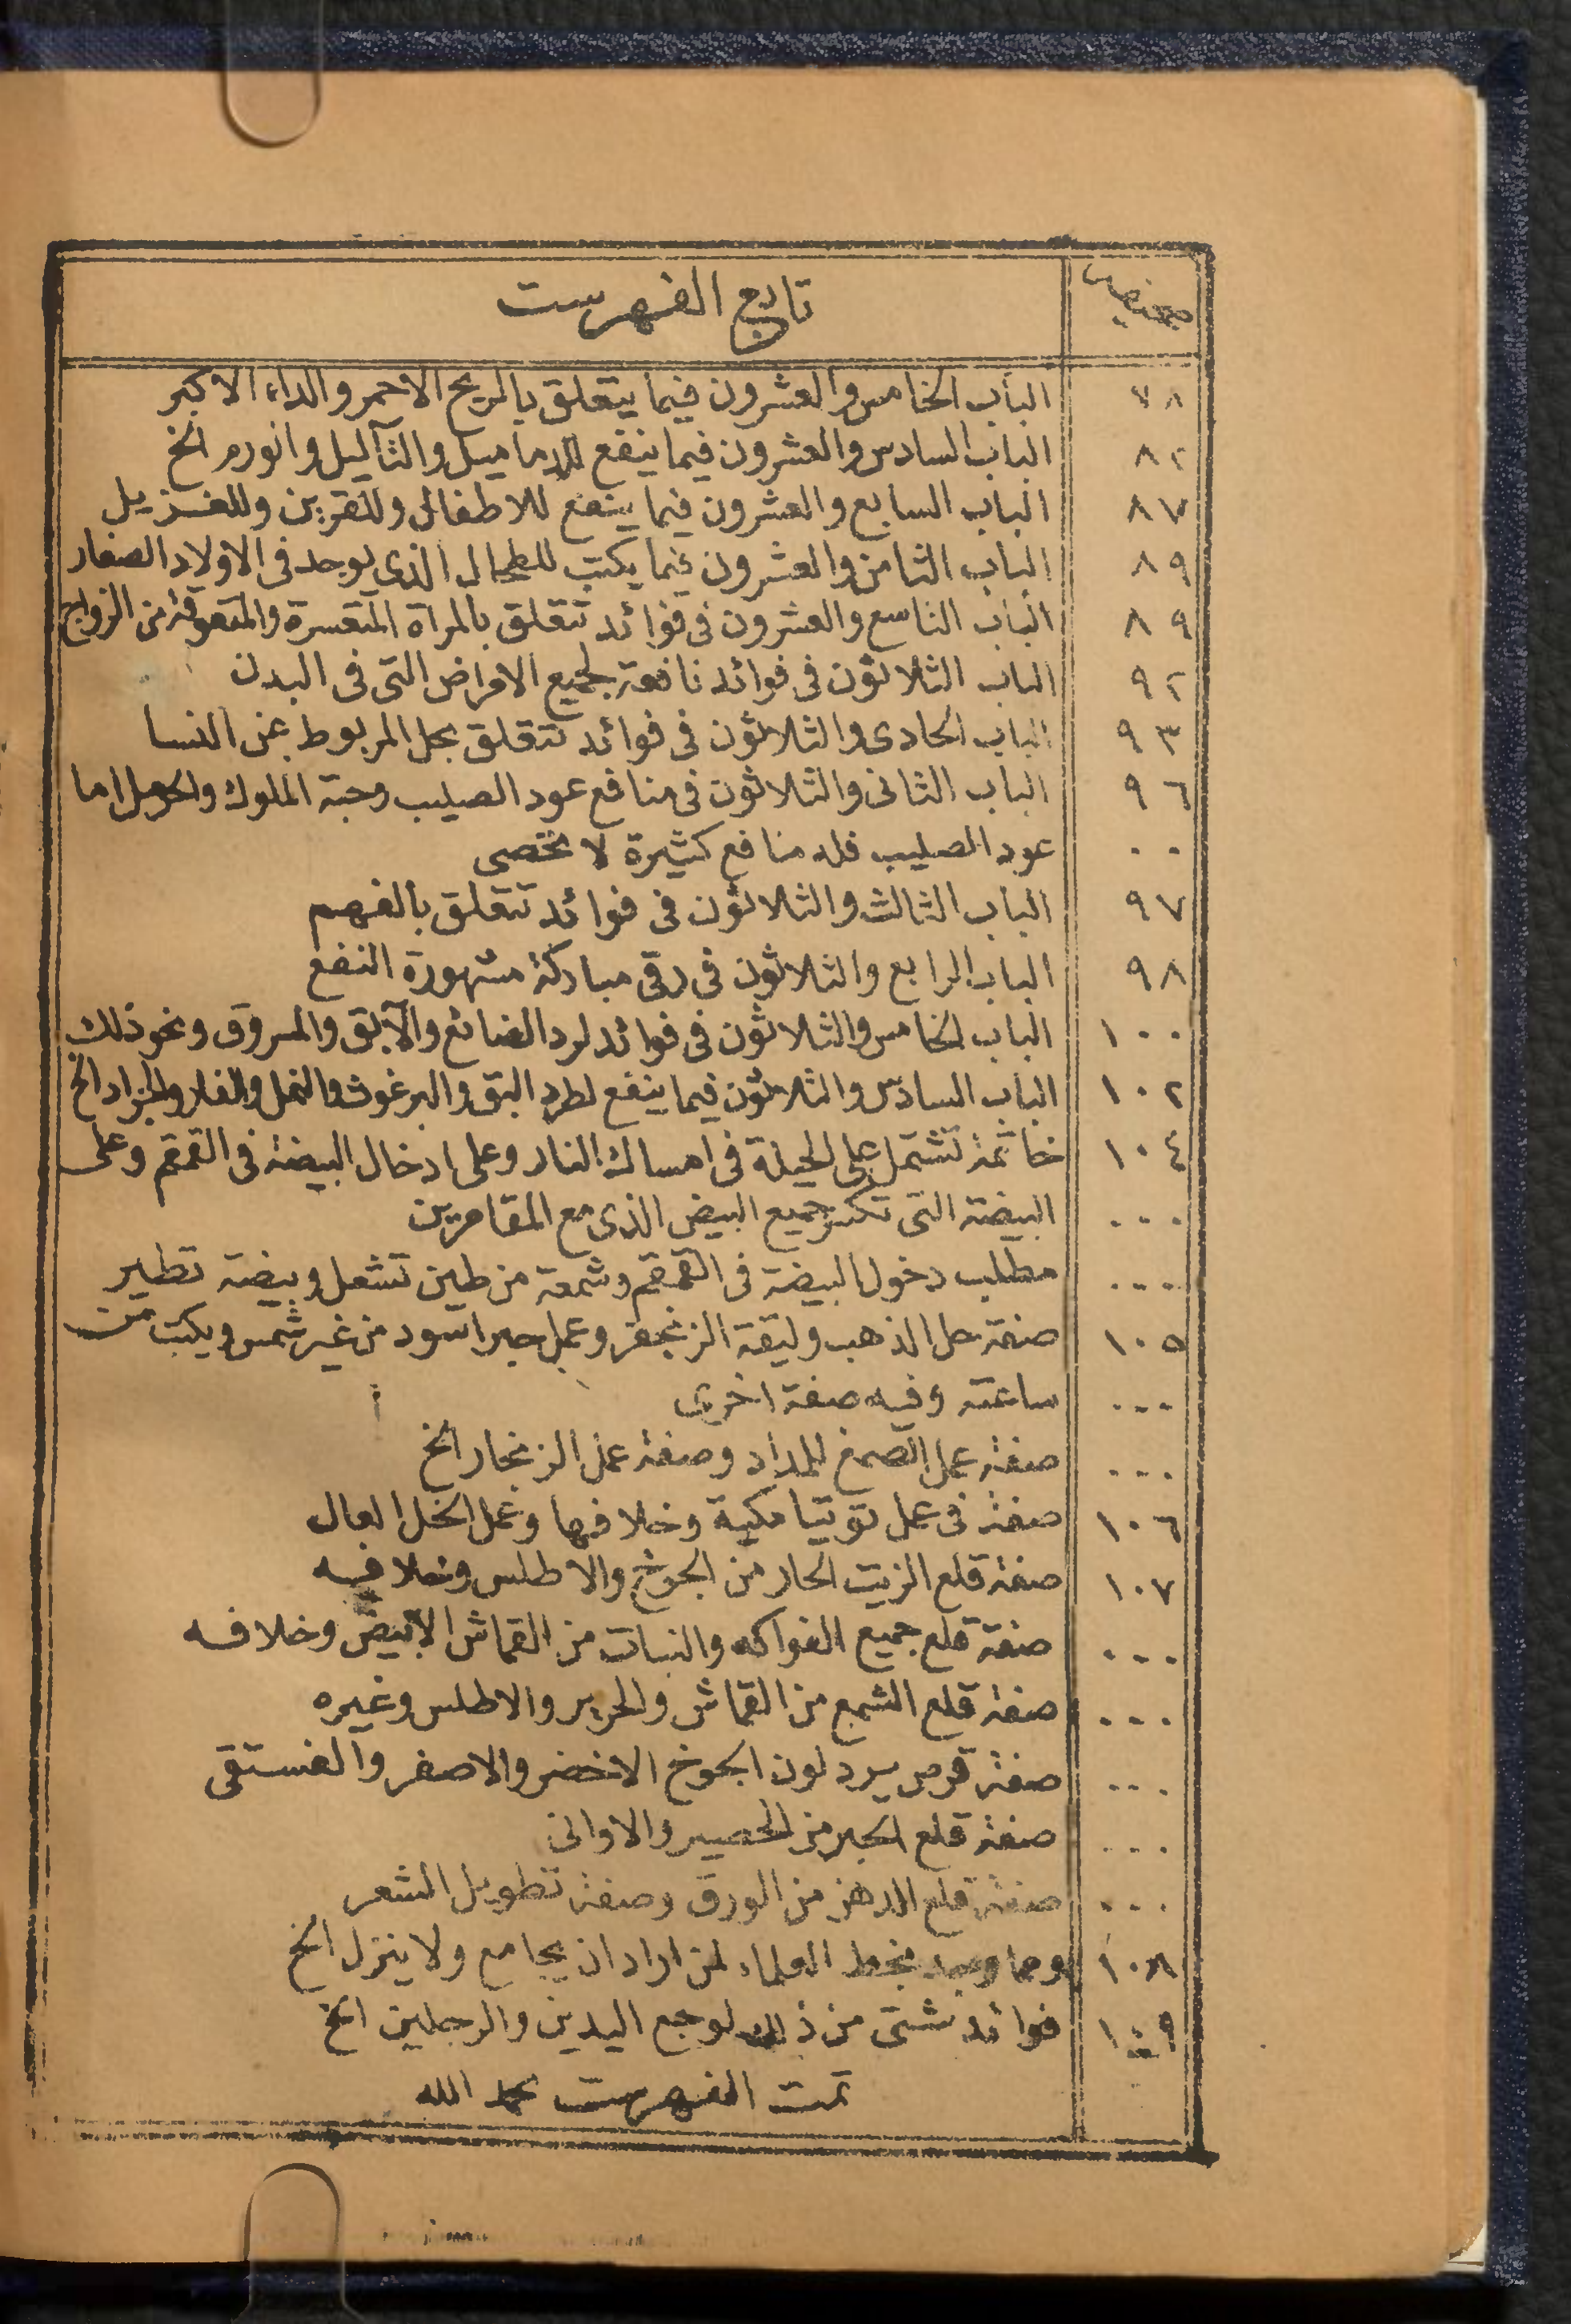 صحيفه تابع الفهرست
٧٨ الباب الخامس والعشرون فيما يتعلق بالريح الاحمر والداء الاكبر
٨٢ الباب السادس والعشرون فيما ينفع للدماميل والثآليل والورم الخ
٨٧ الباب السابع والعشرون فيما ينفع للاطفال وللقرين وللغزيل
٨٩ الباب الثامن والعشرون فيما يكتب للطحال الذى يوجد فى الاولاد الصغار
٨٩ الباب التاسع والعشرون فى فوائد تتعلق بالمرأة المتعسرة والمتعوقة من الزواج
٩٢ الباب الثلاثون فى فوائد نافعة لجميع الامراض التى فى البدن
٩٣ الباب الحادى والثلاثون فى فوائد تتعلق بحل المربوط عن النسا
٩٦ الباب الثانى والثلاثون فى منافع عود الصليب وحبة الملوك والحرمل اما
٠٠ عود الصليب فله منافع كثيرة لا تحصى
٩٧ الباب الثالث والثلاثون فى فوائد تتعلق بالفهم
٩٨ الباب الرابع والثلاثون فى رقى مباركة مشهورة النفع
١٠٠ الباب الخامس والثلاثون فى فوائد لرد الضائع والآبق والمسروق ونحو ذلك
١٠٢ الباب السادس والثلاثون فيما ينفع لطرد البق والبرغوث والنمل والفار والجراد الخ
١٠٤ خاتمة تشتمل على الحيلة فى امساك النار وعلى ادخال البيضة فى القمقم وعلى
٠٠٠ البيضة التى تكسر جميع البيض الذى مع المقامرين
٠٠٠ مطلب دخول البيضة فى القمقم وشمعة من طين تشعل وبيضة تطير
١٠٥ صفة حل الذهب وليقة الزنجفر وعمل حبر اسود من غير شمس ويكتب من
٠٠٠ ساعته وفيه صفة اخرى
٠٠٠ صفة عمل الصمغ للمداد وصفة عمل الزنجار الخ
١٠٦ صفة فى عمل توتيا مكية وخلافها وعمل الخل العال
١٠٧ صفة قلع الزيت الحار من الجوخ والاطلس وخلافه
٠٠٠ صفة قلع جميع الفواكه والنبات من القماش الابيض وخلافه
٠٠٠ صفة قلع الشمع من القماش والحرير والاطلس وغيره
٠٠٠ صفة قرص يرد لون الجوخ الاخضر والاصفر والفستقى
٠٠٠ صفة قلع الحبر من الحصير والاوانى
٠٠٠ صفة قلع الدهن من الورق وصفة تطويل الشعر
١٠٨ ومما وجد بخط العلماء لمن اراد ان يجامع ولا ينزل الخ
١٠٩ فوائد شتى من ذلك لوجع اليدين والرجلين الخ
تمت الفهرست بحمد الله